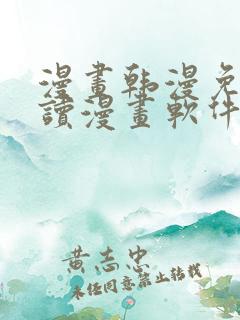 漫畫韩漫免
讀漫畫軟件
黄志忠
未任同意禁止转载